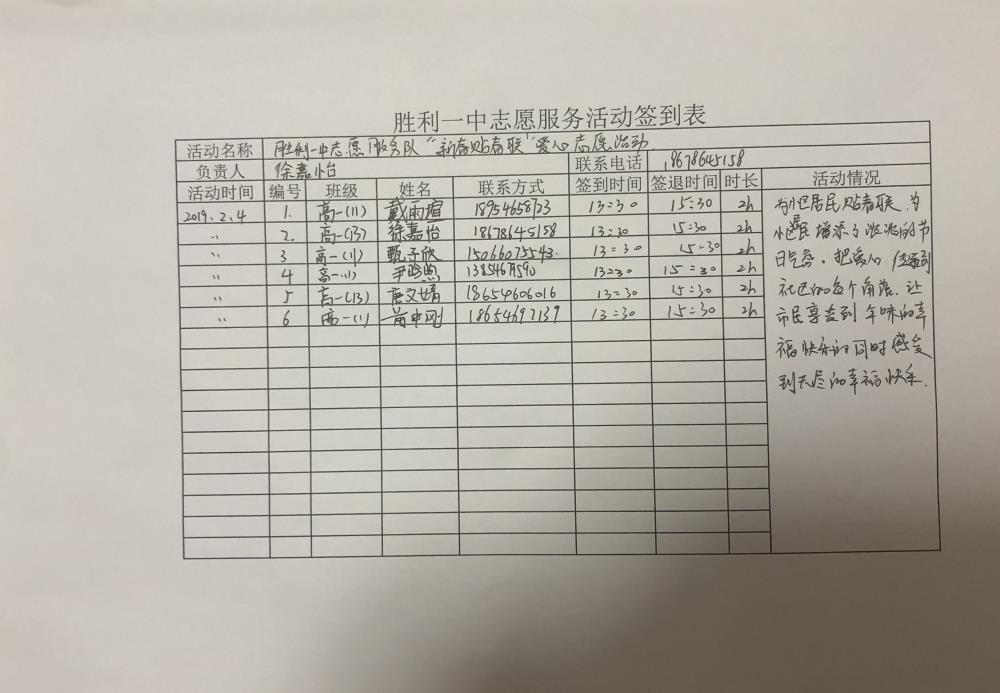 胜利一中志愿服务活动签到表
活动名称 胜利一中志愿服务队“新春贴春联”爱心志愿活动
负责人 徐嘉怡 联系电话 18678645158
活动时间 编号 班级 姓名 联系方式 签到时间 签退时间 时长 活动情况
2019.2.4 1. 高一(11) 戴雨瑄 18954658723 13:30 15:30 2h
〃 2. 高一(13) 徐嘉怡 18678645158 13:30 15:30 2h
〃 3 高一(11) 甄子欣 15066075543. 13:30 15:30 2h
〃 4 高一(1) 尹 13:30 15:30 2h
〃 5 高一(13) 唐文婧 18654606016 13:30 15:30 2h
〃 6 高一(1) 黄中刚 18654697139 13:30 15:30 2h
为小区居民贴春联.为
小区居民增添了浓浓的节
日气氛.把爱心传递到
社区的各个角落.让
市民享受到年味的幸
福快乐的同时感受
到无尽的幸福快乐.